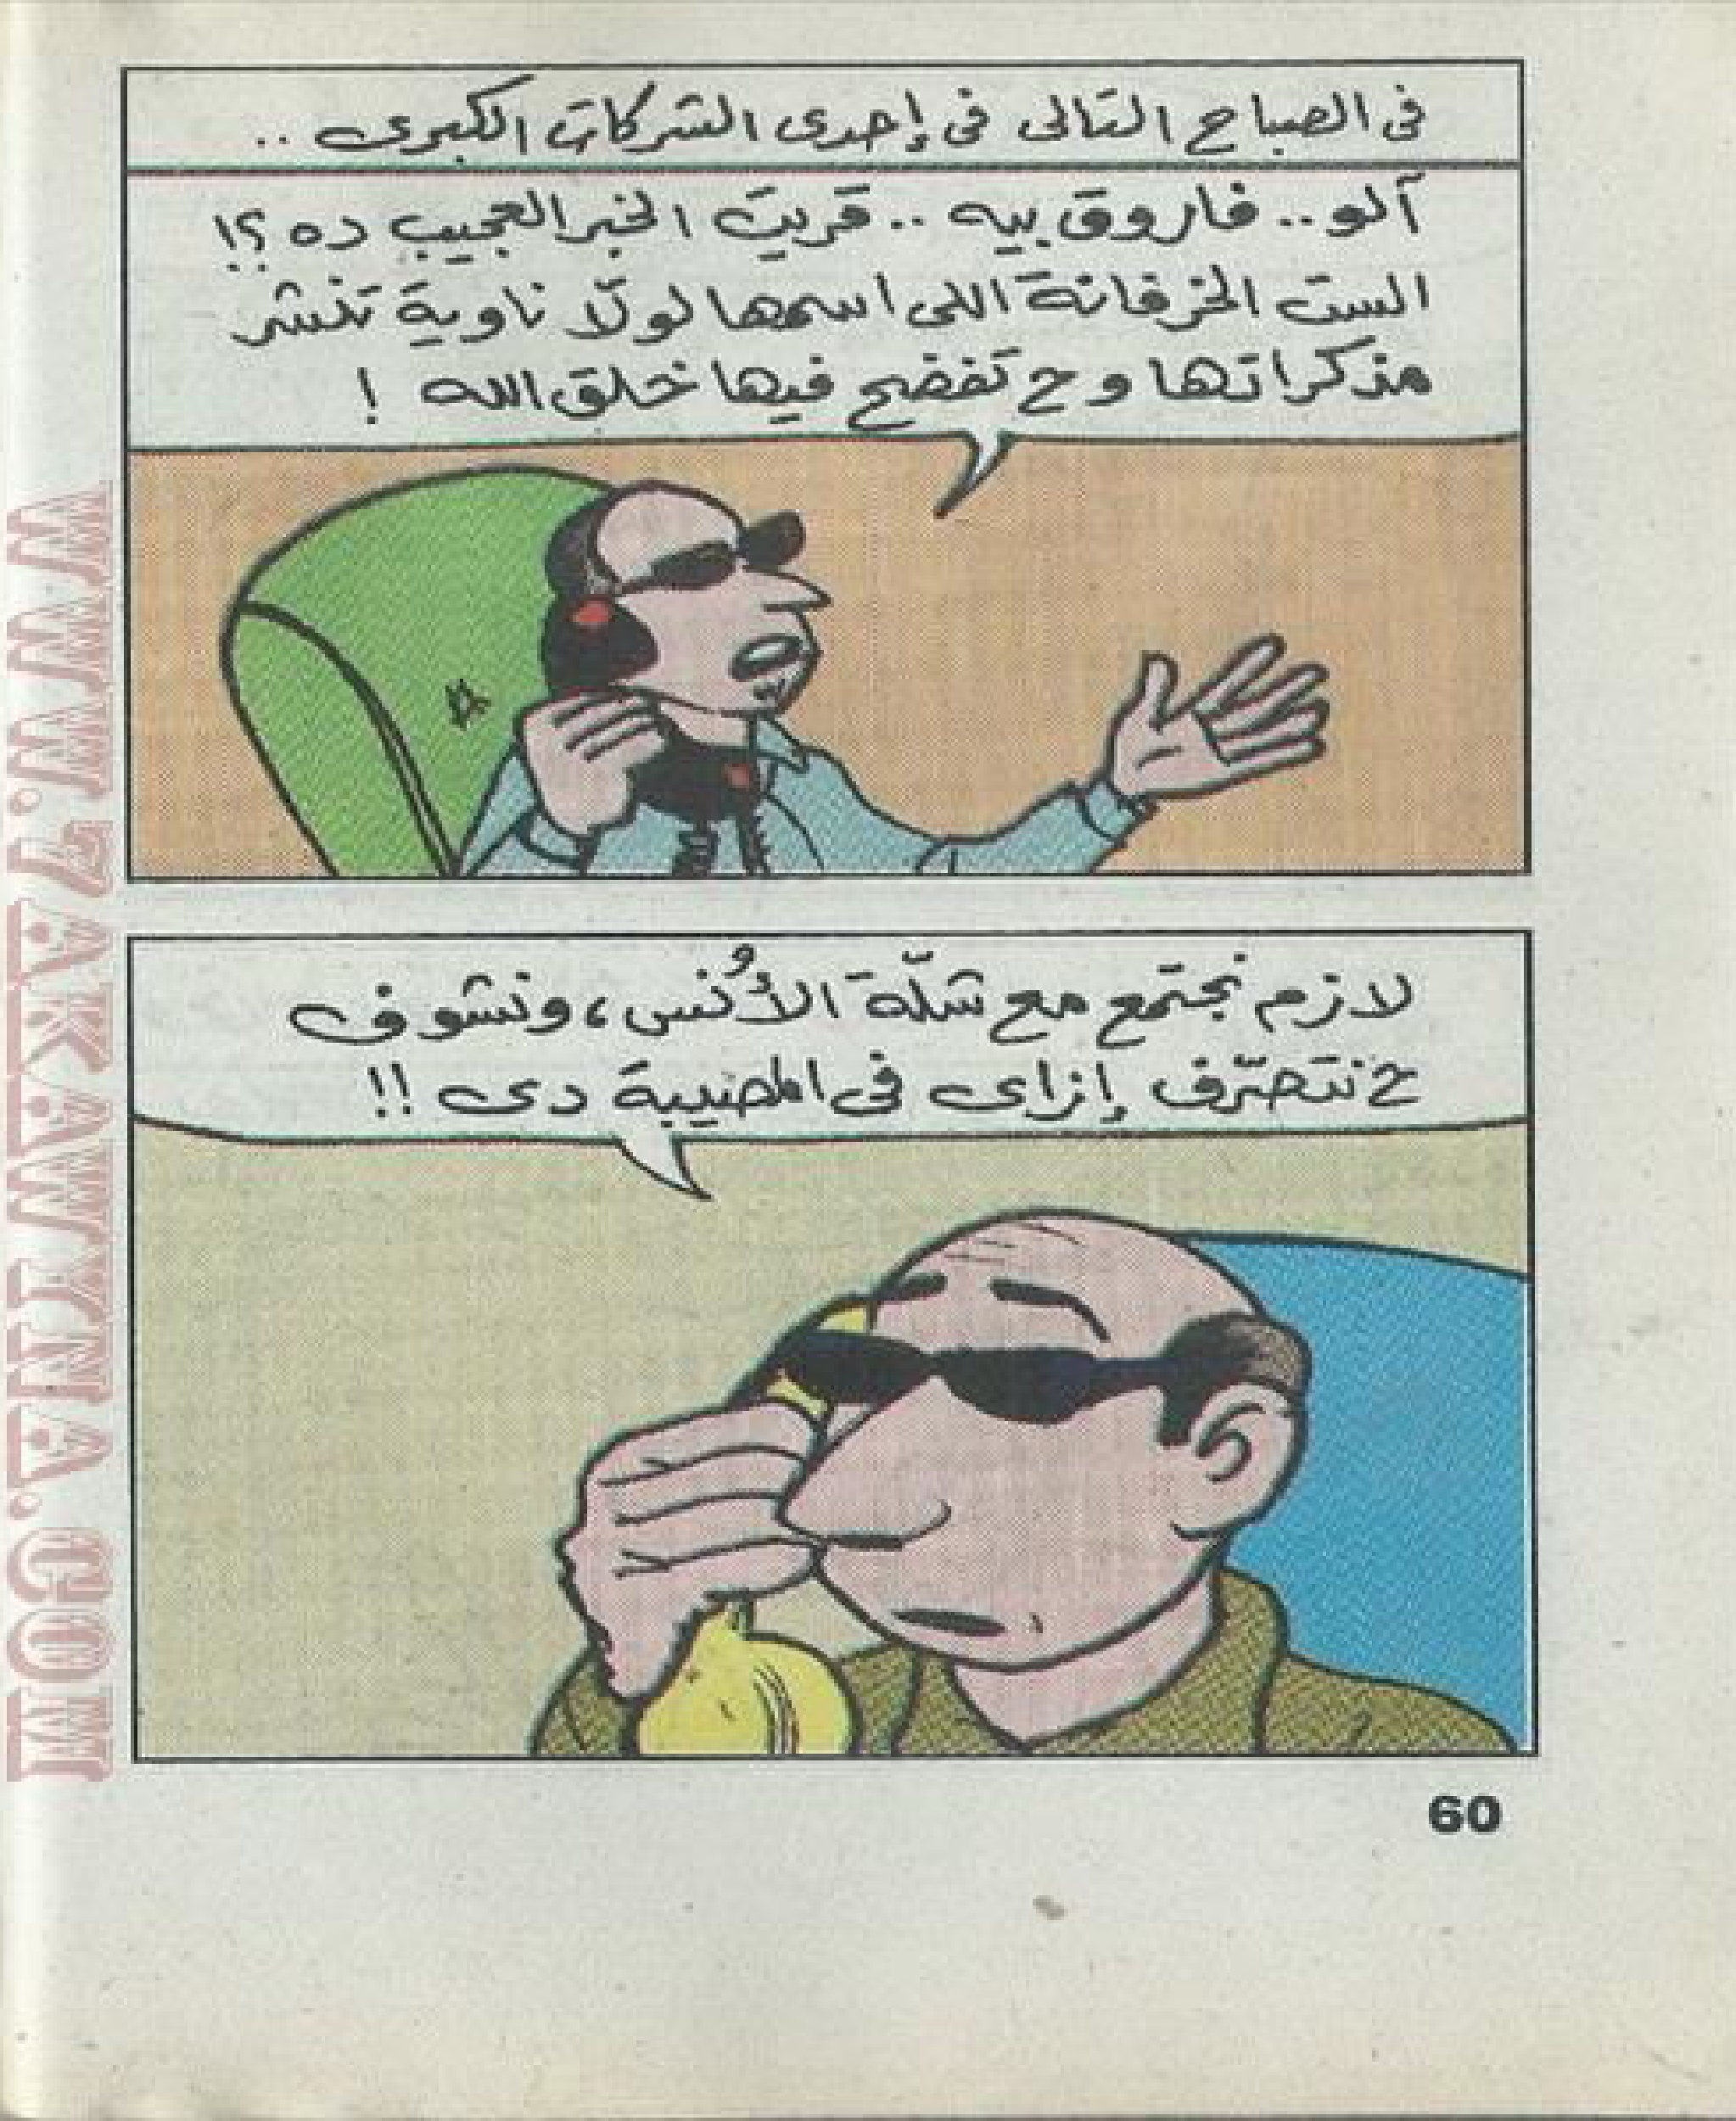 فى الصباح التالى فى إحدى الشركات الكبرى ..
آلو.. فاروق بيه .. قريت الخبر العجيب ده ؟!
الست الخرفانة اللى اسمها لولّا ناوية تنشر
مذكراتها وح تفضح فيها خلق الله !
لازم نجتمع مع شلّة الأُنس، ونشوف
ح نتصرّف إزاى فى المصيبة دى !!
60
WWW.7AKAWINA.COM